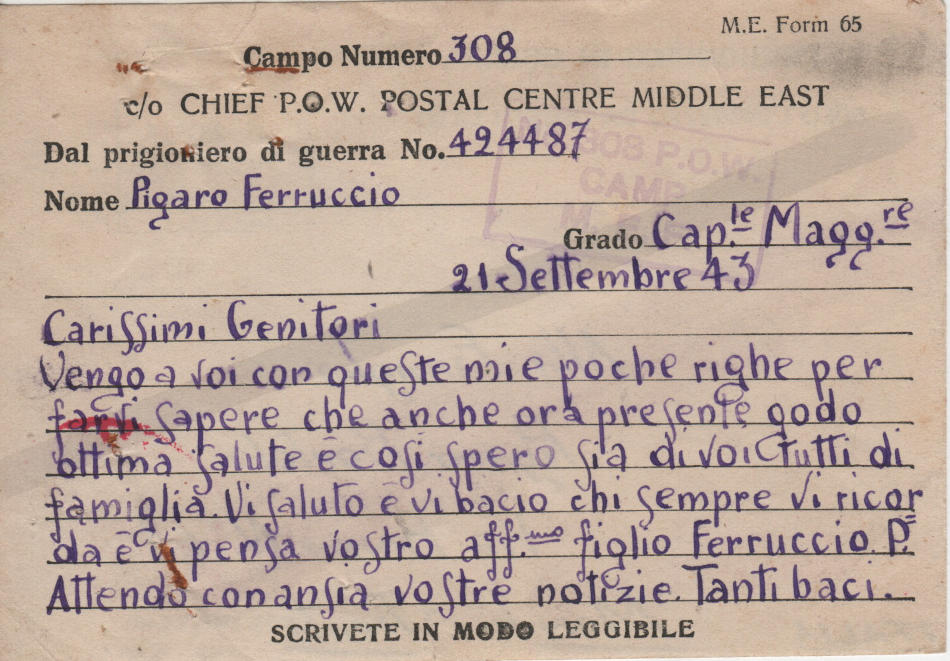 M.E. Form 65
Campo Numero 308
c/o CHIEF P.O.W. POSTAL CENTRE MIDDLE EAST
Dal prigioniero di guerra No. 424487
Nome Pigaro Ferruccio
308 P.O.W.
CAMP
Grado Cap.le Magg.re
21 Settembre 43
Carissimi Genitori
Vengo a voi con queste mie poche righe per
farvi sapere che anche ora presente godo
ottima salute è cosi spero sia di voi tutti di
famiglia. Vi saluto è vi bacio chi sempre vi ricor
da è vi pensa vostro aff.mo figlio Ferruccio P.
Attendo con ansia vostre notizie. Tanti baci.
SCRIVETE IN MODO LEGGIBILE